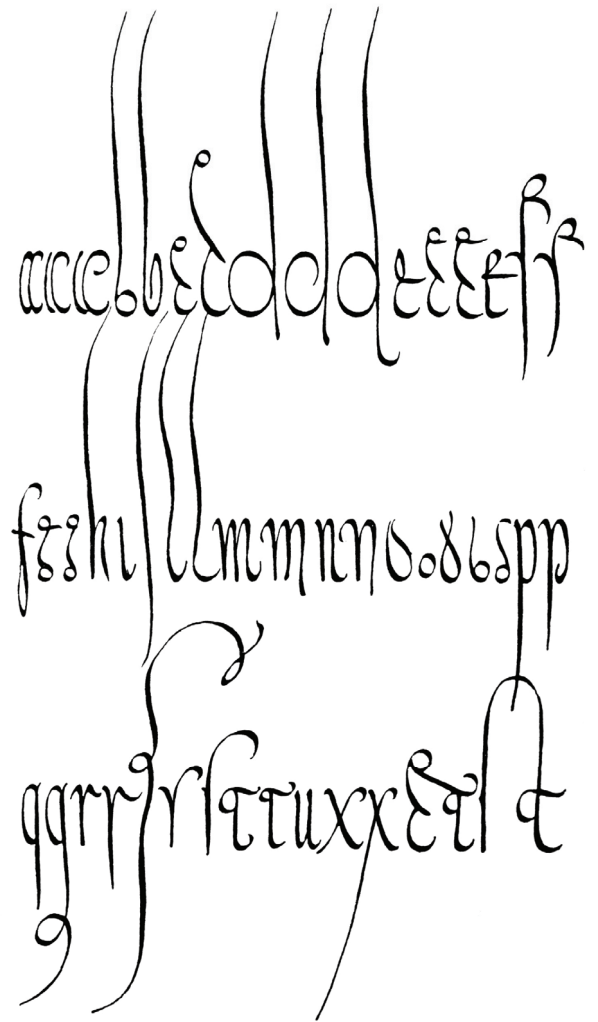 a a a b b c c d d d e e e e f f
f g g h i i l l m m n n o o o o o p p
q q r r s r s t t u x x et st